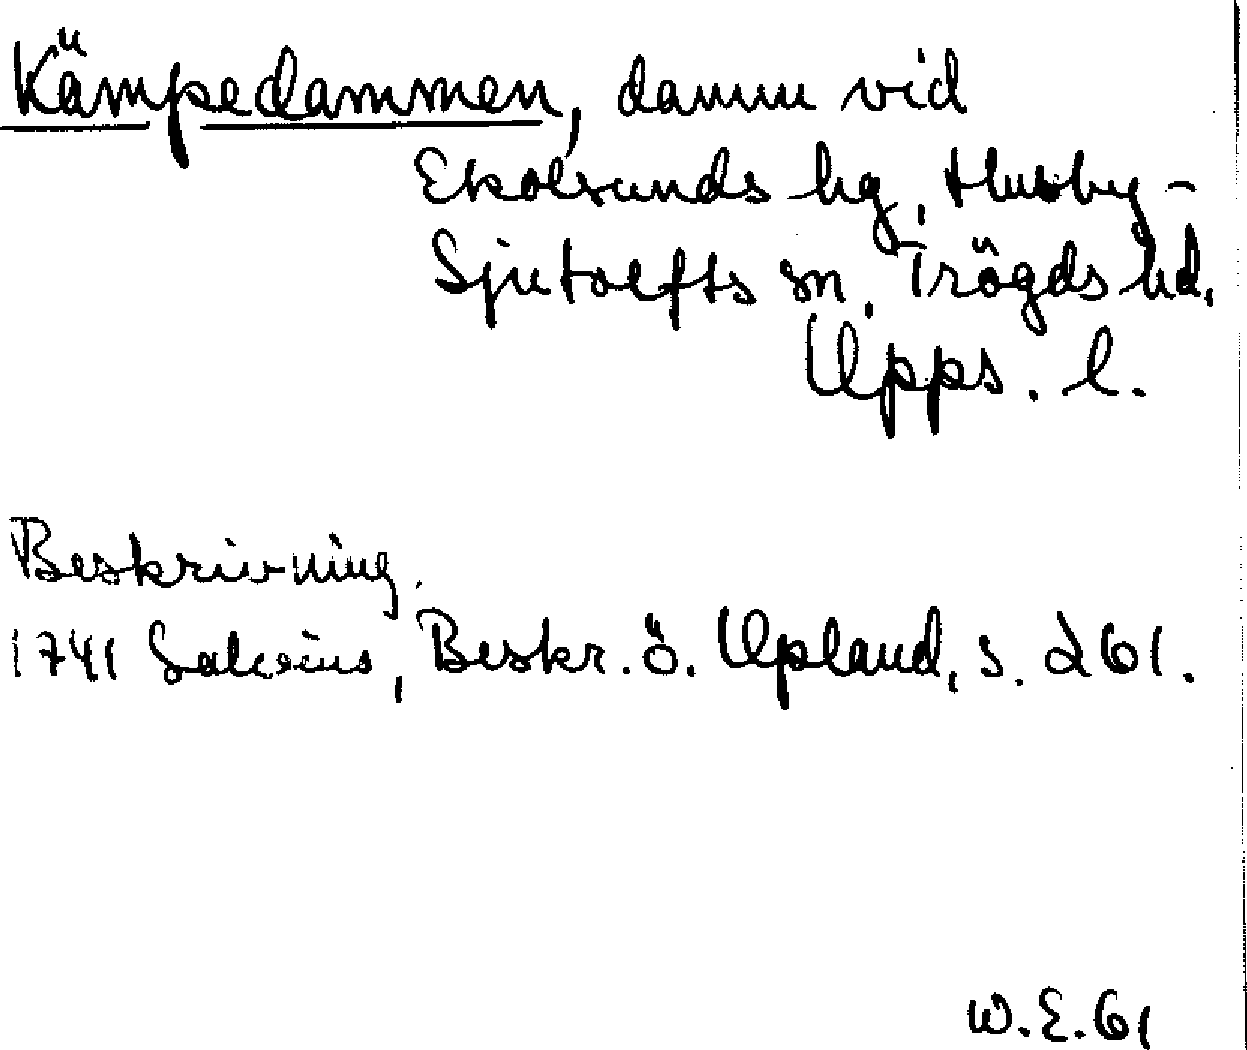 Kämpedammen, damm vid
Ekolsunds hg, Husby-
Sjutolfts sn, Trögds hd,
Upps. l.
Beskrivning.
1741 Salvius, Beskr. ö. Upland, s. 261.
W.E. 61